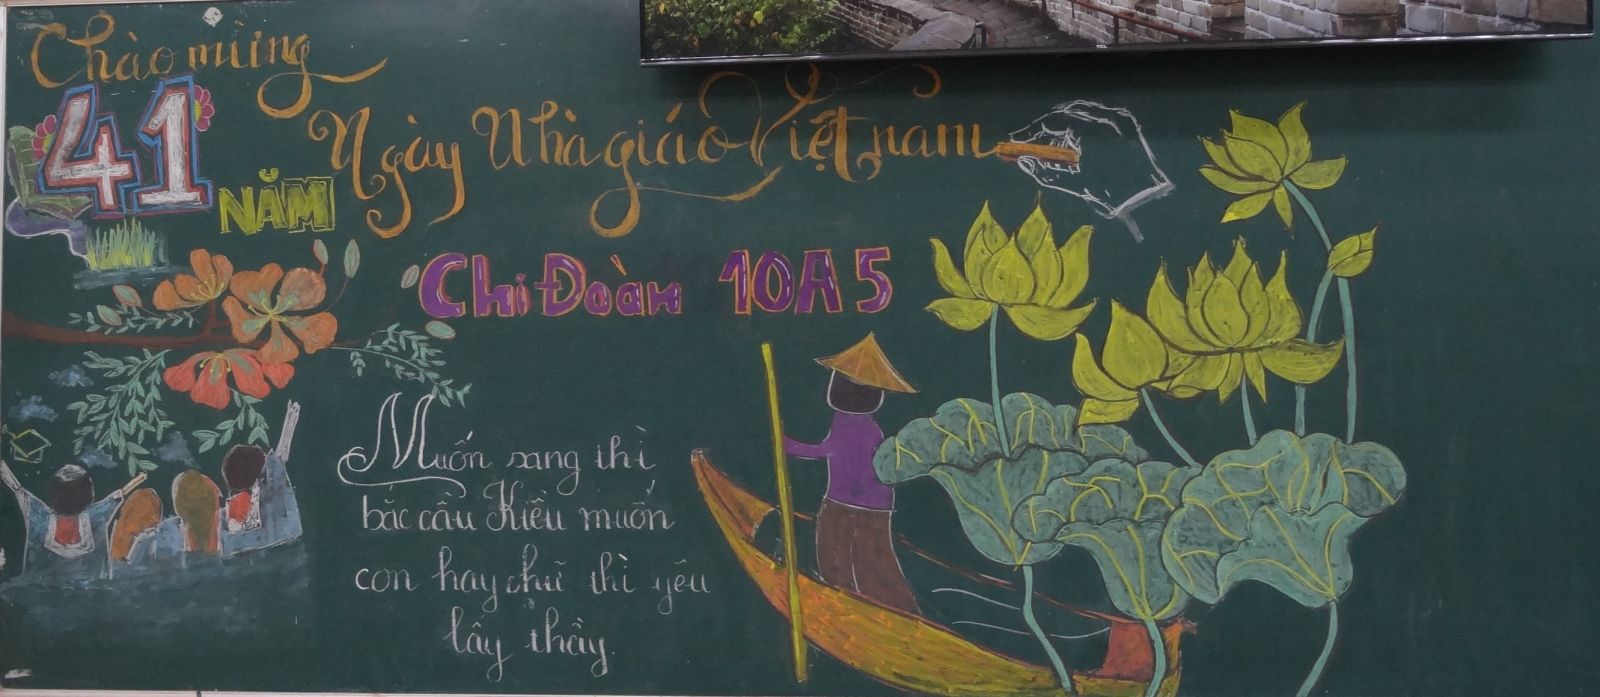 Chào mừng
41
NĂM
Ngày Nhà giáo Việt nam
Chi Đoàn 10A5
Muốn sang thì
bắc cầu Kiều muốn
con hay chữ thì yêu
lấy thầy.
TCL